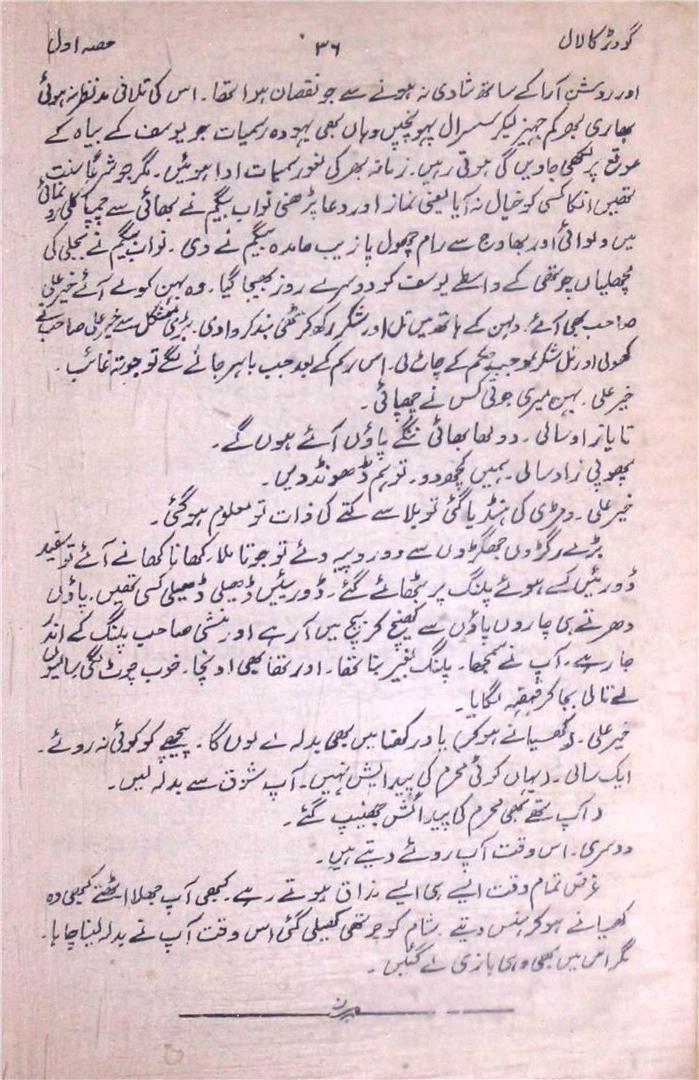 گودڑ کا لال ۳۶ حصہ اول
اور روشن آرا کے ساتھ شادی نہ ہونے سے جو نقصان ہوا تھا۔ اس کی تلافی مدنظر نہ ہوئی
بھاری بھرکم جہیز لیکر سسرال پہونچیں وہاں بھی بیہودہ رسمیات جو یوسف کے بیاہ کے
موقع پر لکھی جاویں گی ہوتی رہیں۔ زمانہ بھر کی لغو رسمیات ادا ہوئیں۔ مگر جو شرعاً سنت
تھیں انکا کسی کو خیال نہ آیا یعنی نماز اور دعا پڑھنی نواب بیگم نے بھائی سے چمپاکلی رو نمائی
میں دلوائی اور بھاوج سے رام جھول پازیب حامدہ بیگم نے دی۔ نواب بیگم نے بجلی کی
مچھلیاں چوتھی کے واسطے یوسف کو دوسرے روز بھیجا گیا۔ وہ بہن کو لے آئے خیر علی
صاحب بھی آئے۔ دلہن کے ہاتھ میں تل اور شکر رکھ کر مٹھی بند کروا دی۔ بڑی مشکل سے خیر علی صاحب نے
کھولی اور تل شکر بموجب حکم کے چاٹ لی۔ اس رسم کے بعد جب باہر جانے لگے تو جوتہ غائب۔
خیر علی۔ بہن میری جوتی کس نے چھپائی۔
تایا زاد سالی۔ دولھا بھائی ننگے پاؤں آئے ہوں گے۔
پھوپی زاد سالی۔ ہمیں کچھ دو۔ تو ہم ڈھونڈ دیں۔
خیر علی۔ دمڑی کی ہنڈیا گئی تو بلا سے کتے کی ذات تو معلوم ہو گئی۔
بڑے رگڑوں جھگڑوں سے دو روپیہ دئے تو جوتا ملا۔ کھانا کھانے آئے تو سفید
ڈورئیں کسے ہوئے پلنگ پر بٹھائے گئے۔ ڈوریئیں ڈھیلی ڈھیلی کسی تھیں۔ پاؤں
دھرتے ہی چاروں پاؤں سے کھنچ کر بیچ میں آ رہے اور منشی صاحب پلنگ کے اندر
جا رہے۔ آپ نے سمجھا۔ پلنگ بغیر بنا تھا۔ اور تھا بھی اونچا۔ خوب چوٹ لگی سالیوں
نے تالی بجا کر قہقہہ لگایا۔
خیر علی۔ (کھسیانے ہو کر) یاد رکھنا میں بھی بدلہ لے لوں گا۔ پیچھے کو کوئی نہ روئے۔
ایک سالی۔ یہاں کوئی محرم کی پیدایش نہیں۔ آپ شوق سے بدلہ لیں۔
(آپ تھے بھی محرم کی پیدائش جھینپ گئے۔
دوسری۔ اس وقت آپ روئے دیتے ہیں۔
غرض تمام وقت ایسے ہی ایسے مذاق ہوتے رہے۔ کبھی آپ جھلا اٹھتے کبھی وہ
کھیانے ہو کر ہنس دیتے۔ شام کو چوتھی کھیلی گئی اس وقت آپ نے بدلہ لینا چاہا۔
مگر اس میں بھی وہی بازی لے گئیں۔